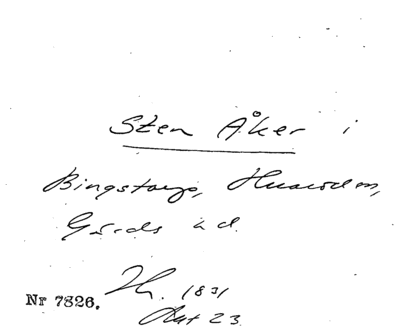 Sten Åker i
Bingstorp, Huaröds sn,
Gärds hd.
Nr 7826. Th. 1831
Akt 23